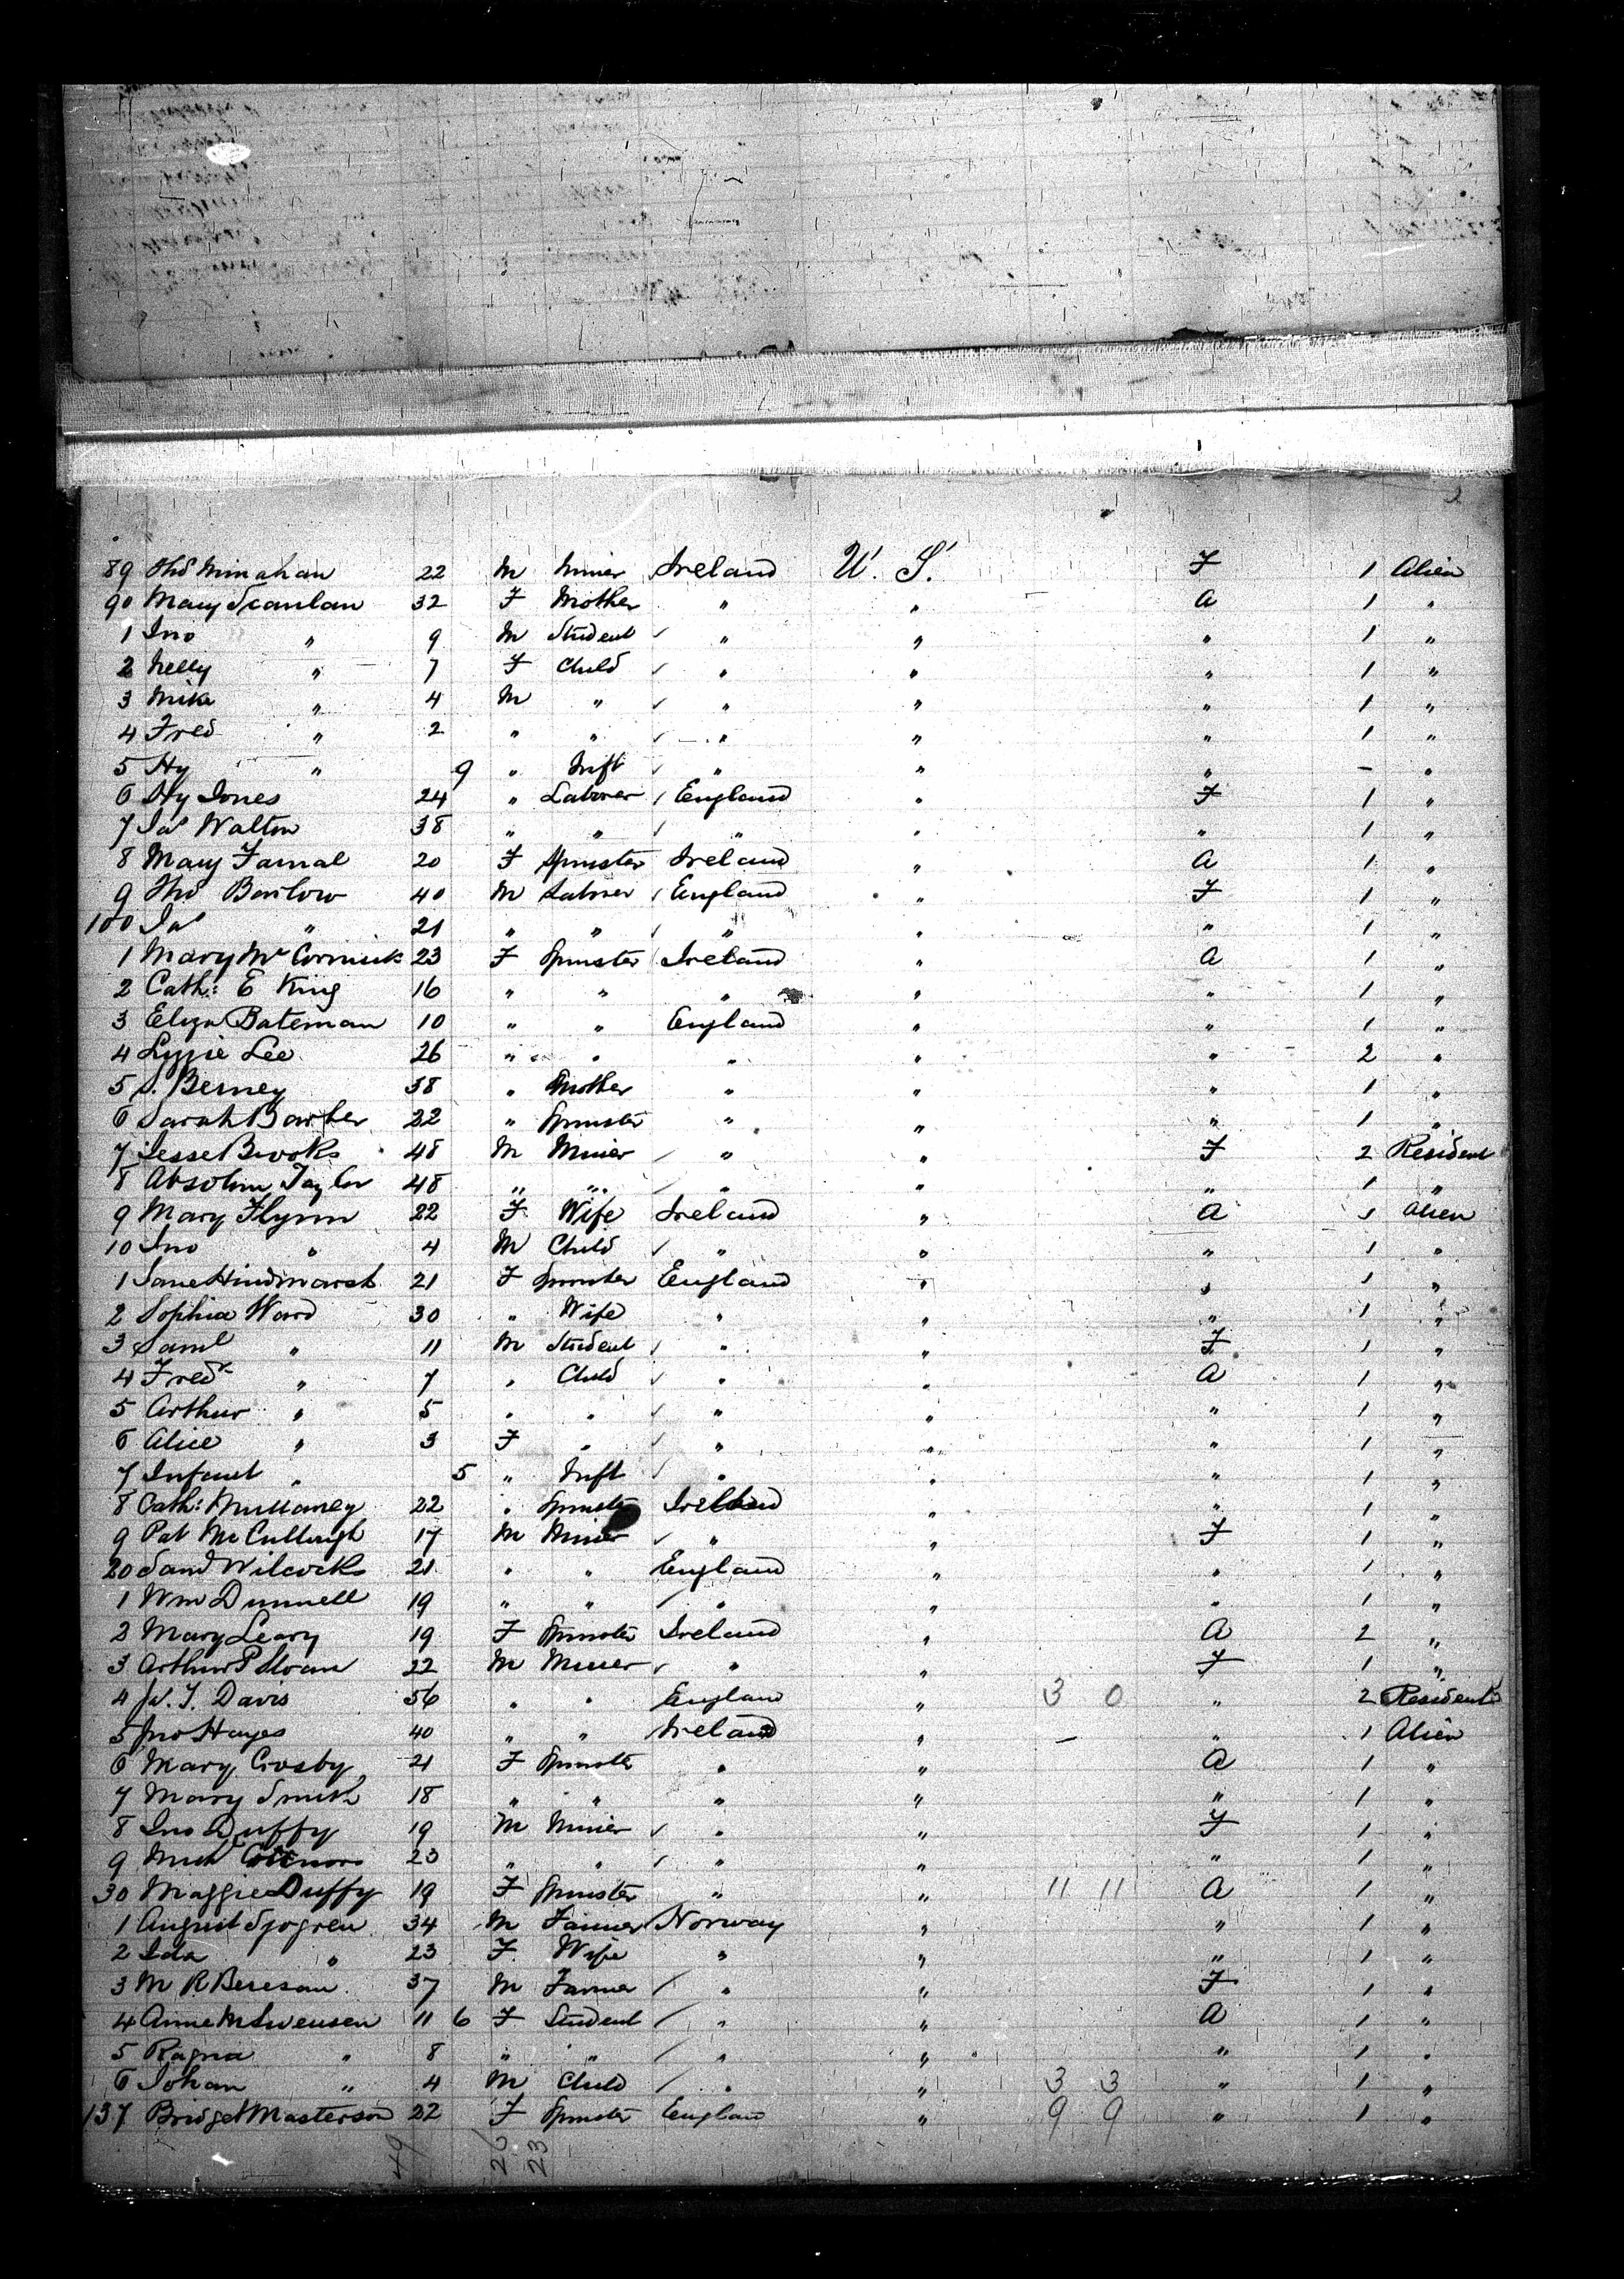 89 Thos Minahan 22 M Miner Ireland U. S. F 1 Alien
90 Mary Scanlan 32 F Mother " " A 1 "
1 Jno " 9 M Student " " " 1 "
2 Nelly " 7 F Child " " " 1 "
3 Mike " 4 M " " " " 1 "
4 Fred " 2 " " " " " 1 "
5 Hy " 9 " Inft " " " – "
6 Hy Jones 24 " Laborer England " F 1 "
7 Jas Walton 38 " " " " " 1 "
8 Mary Farnal 20 F Spinster Ireland " A 1 "
9 Thos Barlow 40 M Labrer England " F 1 "
100 Jas " 21 " " " " " 1 "
1 Mary McCormick 23 F Spinster Ireland " A 1 "
2 Cath: E King 16 " " " " " 1 "
3 Eliza Bateman 10 " " England " " 1 "
4 Lizzie Lee 26 " " " " " 2 "
5 S. Berney 38 " Mother " " " 1 "
6 Sarah Barber 22 " Spinster " " " 1 "
7 Jesse Brooks 48 M Miner " " F 2 Resident
8 Absolm Taylor 48 " " " " " 1 "
9 Mary Flynn 22 F Wife Ireland " A 1 Alien
10 Jno " 4 M Child " " " 1 "
1 Jane Hindmarsh 21 F Spinster England " " 1 "
2 Sophia Ward 30 " Wife " " " 1 "
3 Saml " 11 M Student " " F 1 "
4 Fredk " 7 " Child " " A 1 "
5 Arthur " 5 " " " " " 1 "
6 Alice " 3 F " " " " 1 "
7 Infant " 5 " Inft " " " 1 "
8 Cath: Mullaney 22 " Spinster Ireland " " 1 "
9 Pat McCullough 17 M Miner " " F 1 "
20 Saml Wilcocks 21 " " England " " 1 "
1 Wm Dunnell 19 " " " " " 1 "
2 Mary Leary 19 F Spinster Ireland " A 2 "
3 Arthur P Sloan 22 M Miner " " F 1 "
4 W. T. Davis 56 " " England " 3 0 " 2 Resident
5 Jno Hayes 40 " " Ireland " – " 1 Alien
6 Mary Crosby 21 F Spinster " " A 1 "
7 Mary Smith 18 " " " " " 1 "
8 Jno Duffy 19 M Miner " " F 1 "
9 Mich Connors 23 " " " " " 1 "
30 Maggie Duffy 19 F Spinster " " 11 11 A 1 "
1 August Sjogren 34 M Farmer Norway " " 1 "
2 Ida " 23 F Wife " " " 1 "
3 M R Bereson 37 M Farmer " " F 1 "
4 Anne M Swensen 11 6 F Student " " A 1 "
5 Ragna " 8 " " " " " 1 "
6 Johan " 4 M Child " " 3 3 " 1 "
137 Bridget Masterson 22 F Spinster England " 9 9 " 1 "
49 26 23